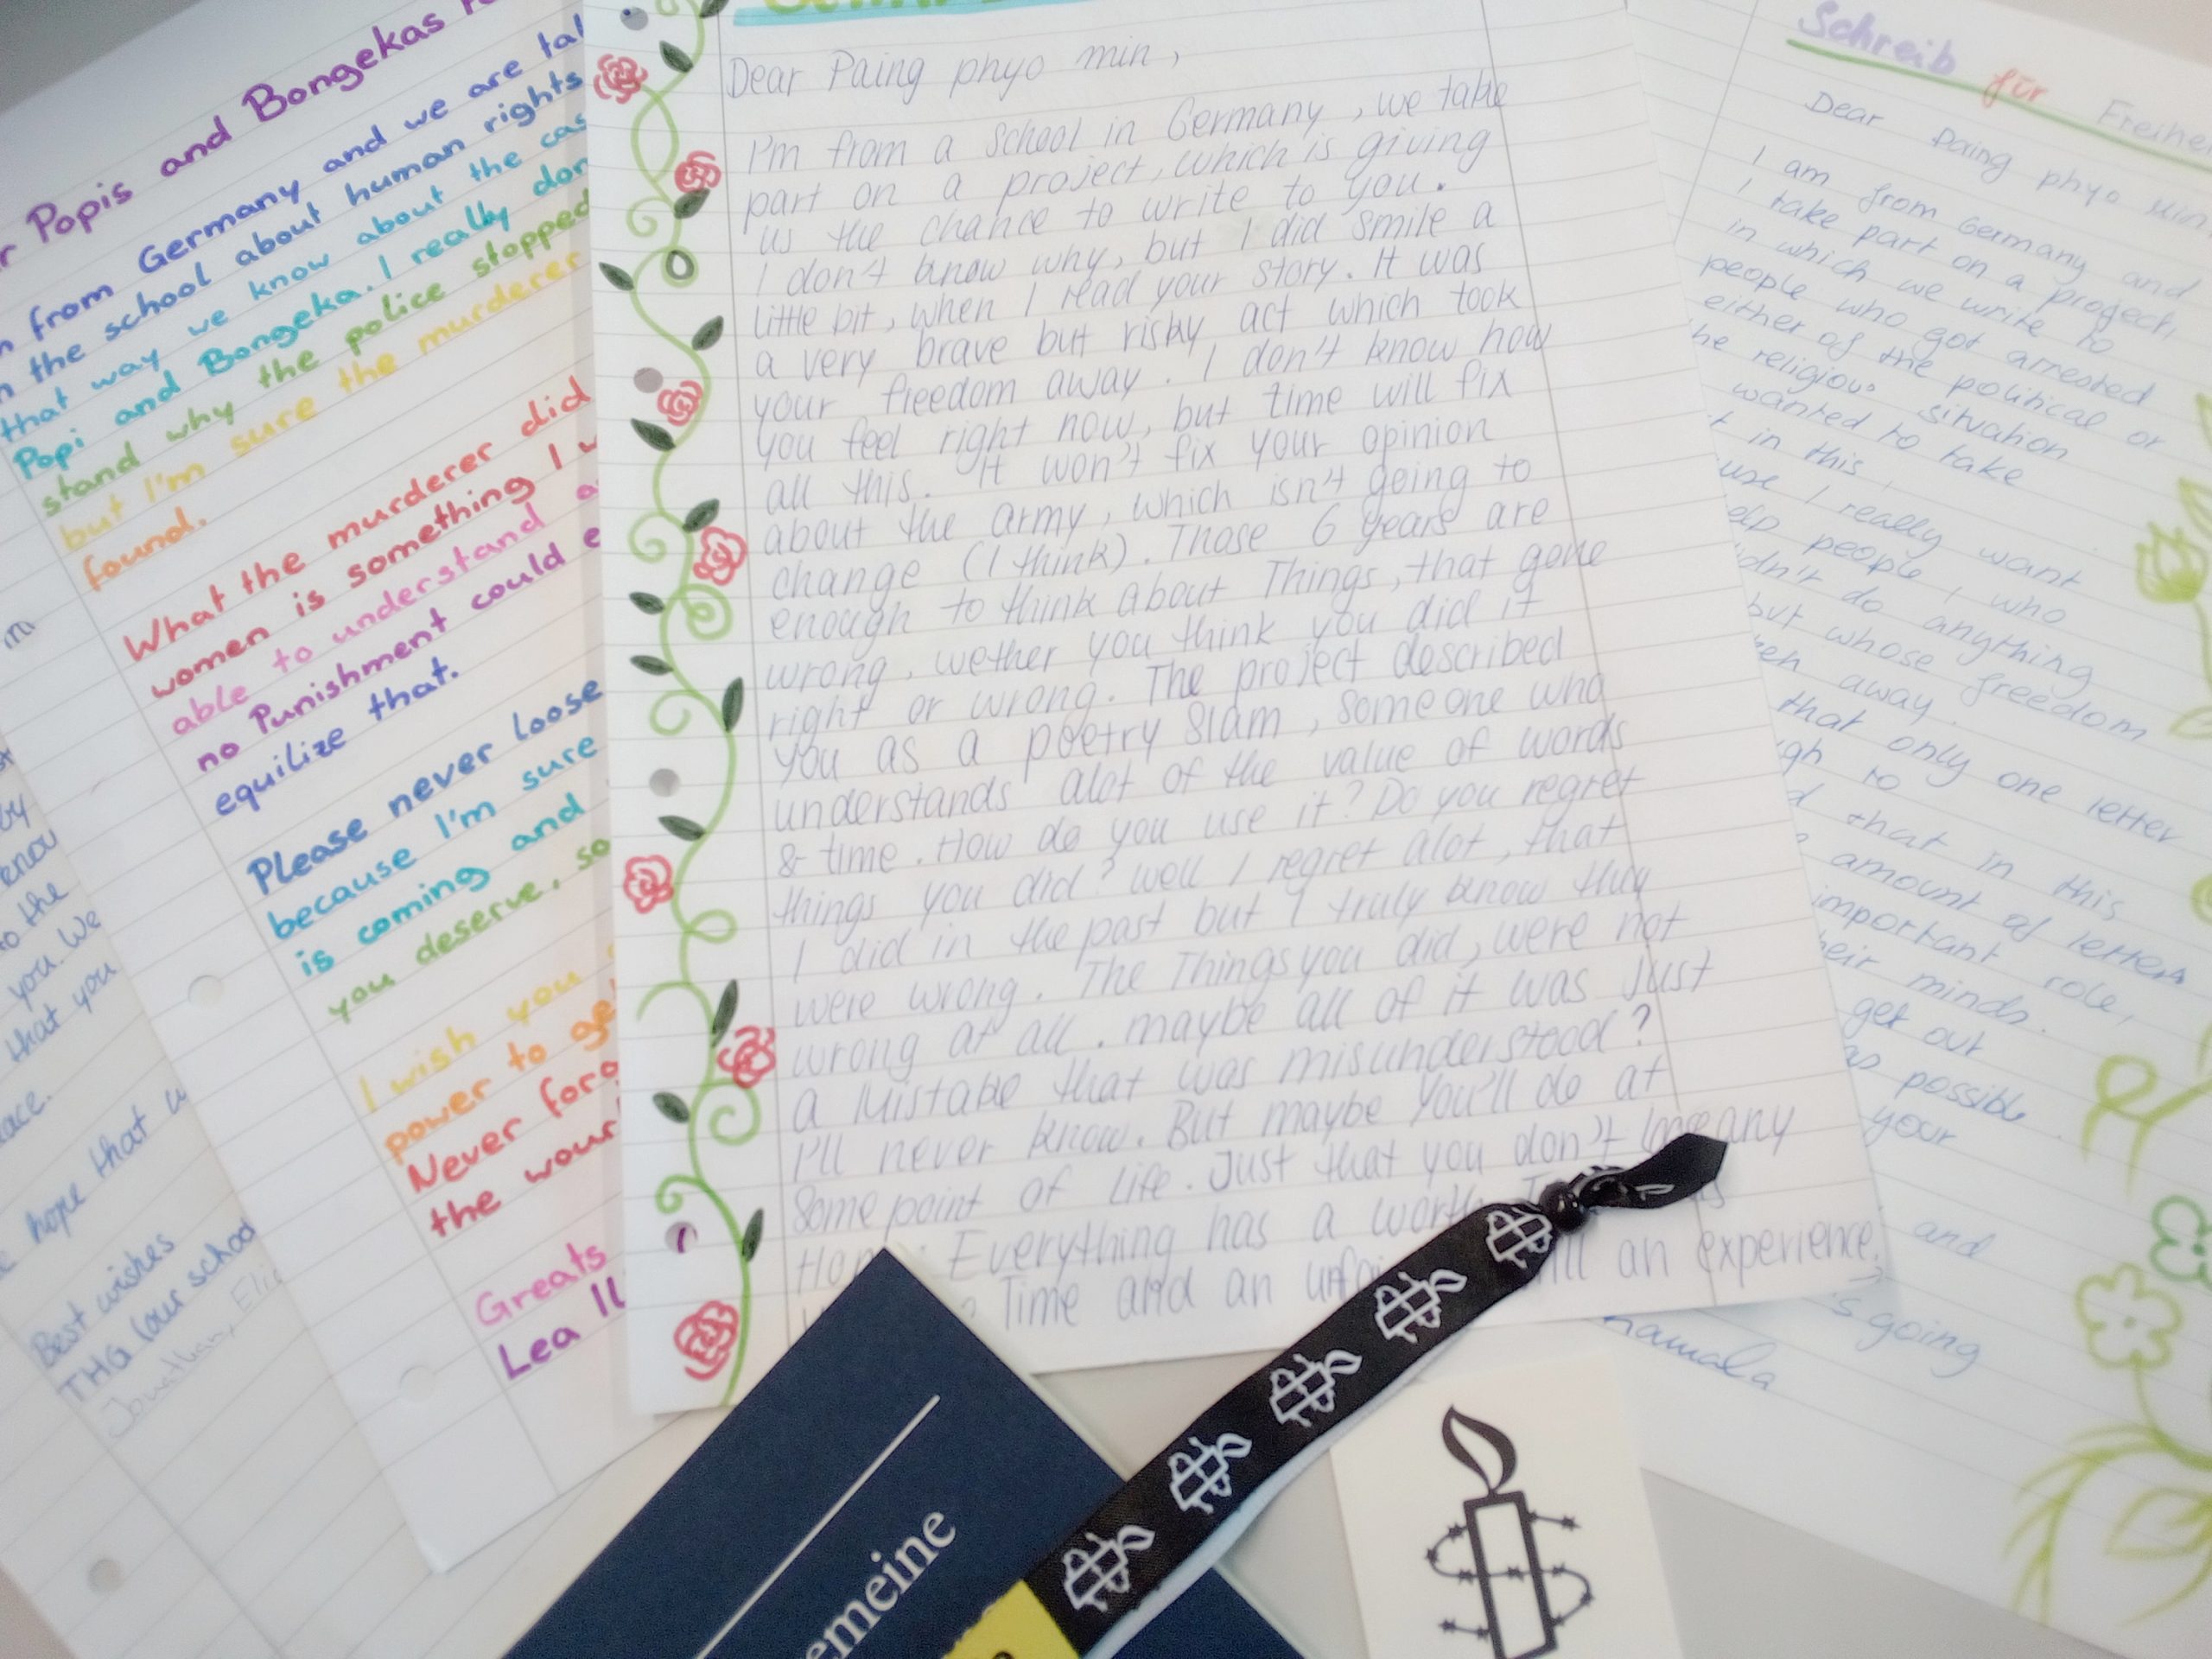 by
know
to the
you. We
that you
hope that w
Best wishes
THG (our school
Jonathan, Eli
Popis and Bongekas
from Germany and we are tal
the school about human rights
that way we know about the cas
Popi and Bongeka. I really don
stand why the police stopped
but I'm sure the murderer
found.
What the murderer did
women is something I w
able to understand a
no Punishment could e
equilize that.
Please never loose
because I'm sure
is coming and
you deserve, so
I wish you
power to ge
Never forg
the wour
Greats
Lea
Dear Paing phyo min,
I'm from a School in Germany, we take
part on a project, which is giving
us the chance to write to you.
I don't know why, but I did smile a
little bit, when I read your story. It was
a very brave but risky act which took
your freedom away. I don't know how
you feel right now, but time will fix
all this. It won't fix your opinion
about the army, which isn't going to
change (I think). Those 6 years are
enough to think about Things, that gone
wrong, wether you think you did it
right or wrong. The project described
you as a poetry Slam, someone who
understands alot of the value of words
& time. How do you use it? Do you regret
things you did? Well I regret alot, that
I did in the past but I truly know they
were wrong. The Things you did, were not
wrong at all. maybe all of it was Just
a Mistake that was misunderstood?
I'll never know. But maybe You'll do at
Some point of life. Just that you don't any
Everything has a
Time and an an experience.
Schreib für Freihei
Dear Paing phyo
I am from Germany and
I take part on a progect,
in which we write to
people who got arrested
either of the political or
he religious situation
wanted to take
t in this,
use I really want
elp people, who
idn't do anything
but whose freedom
en away.
that only one letter
gh to
d that in this
amount of letters
important role,
heir minds.
get out
as possible.
your
and
's going
emeine